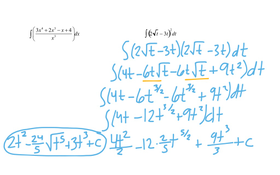 ∫(3x⁴ + 2x² − x + 4 / x²)dx
∫(2√t − 3t)²dt
∫(2√t − 3t)(2√t − 3t)dt
∫(4t − 6t√t − 6t√t + 9t²)dt
∫(4t − 6t^3/2 − 6t^3/2 + 9t²)dt
∫(4t − 12t^3/2 + 9t²)dt
4t²/2 − 12·2/5 t^5/2 + 9t³/3 + c
2t² − 24/5 √t⁵ + 3t³ + c